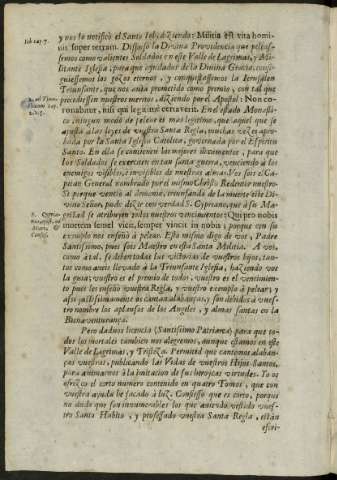 Iob cap. 7.
y nos lo notificò el Santo Iob, diziendo: Militia est vita homi-
nis super terram. Dispuso la Divina Providencia que peleas-
semos como valientes Soldados en este Valle de Lagrimas, y Mi-
litante Iglesia, para que ayudados de la Divina Gracia, consi-
guiessemos los gozos eternos, y conquistassemos la Ierusalen
Triunfante, que nos està prometida como premio, con tal que
precediessen nuestros meritos, diziendo por el Apostol: Non co-
ronabitur, nisi qui legitimè certaverit. En el estado Monasti-
co, ningun modo de pelear es mas legitimo, que aquel que se
ajusta a las leyes de vuestra Santa Regla, muchas vezes apro-
bada por la Santa Iglesia Catolica, governada por el Espiritu
Santo. En ella se contienen los mejores documentos, para que
los Soldados se exerciten en tan santa guerra, venciendo à los
enemigos visibles, è invisibles de nuestras almas. Vos sois el Ca-
pitan General nombrado por el mismo Christo Redentor nuestro.
Si porque venciò al demonio, triunfando de la muerte este Di-
vino Señor, pudo dezir con verdad S. Cypriano, que à su Ma-
gestad se atribuyen todos nuestros vencimientos: Qui pro nobis
mortem semel vicit, semper vincit in nobis; porque con su
exemplo nos enseñò à pelear. Esto mismo digo de vos, Padre
Santissimo, pues sois Maestro en esta Santa Milicia. A vos,
como à tal, se deben todas las victorias de vuestros hijos, tan-
tos como aveis llevado à la Triunfante Iglesia, haziendo vos
la guia; vuestro es el premio de todos, vuestro es el vencimien-
to pues les enseñò vuestra Regla, y vuestro exemplo à pelear; y
assi justissimamente os cantan alabanças, y son debidos à vues-
tro nombre los aplausos de los Angeles, y almas santas en la
Bienaventurança.
Pero dadnos licencia (Santissimo Patriarca) para que to-
dos los mortales tambien nos alegremos, aunque estamos en este
Valle de Lagrimas, y Tristeza. Permitid que cantemos alaban-
ças vuestras, publicando las Vidas de vuestros Hijos Santos,
para animarnos à la imitacion de sus heroycas virtudes. Yo os
ofrezco el corto numero contenido en quatro Tomos, que con
vuestra ayuda he sacado à luz. Confiesso que es corto, porque
no dudo que son innumerables los que aviendo vestido vues-
tro Santo Habito, y professado vuestra Santa Regla, estàn